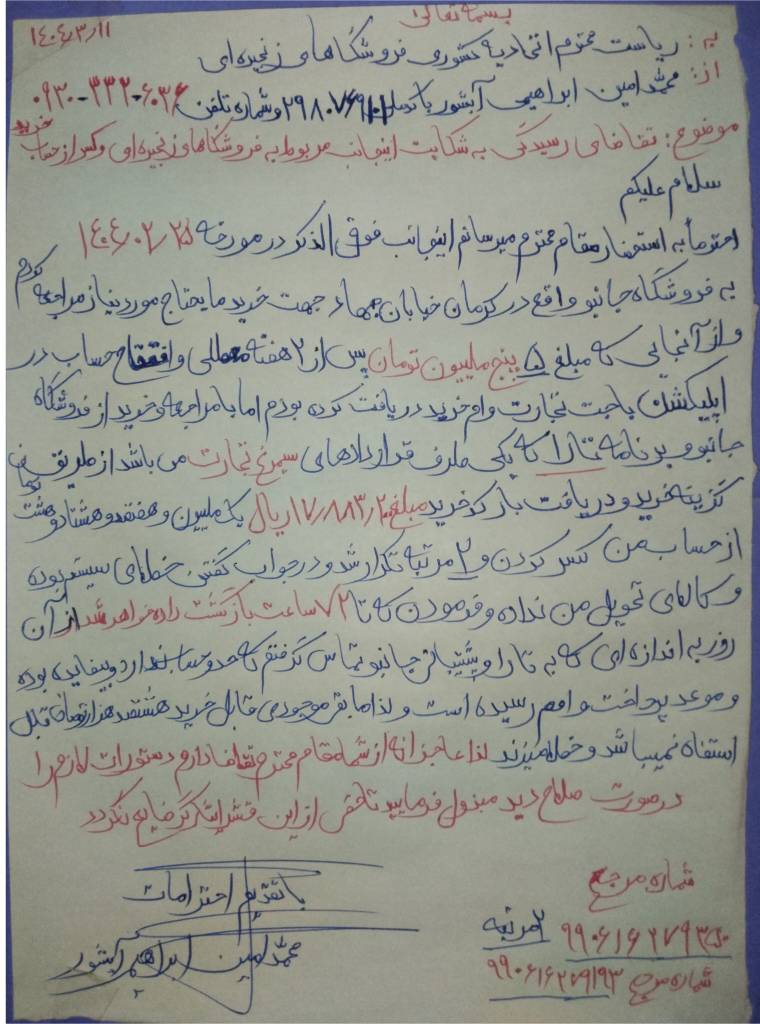 بسمه تعالی
۱۴۰۴/۳/۱۱
به: ریاست محترم اتحادیه کشوری فروشگاهای زنجیره ای
از: محمدامین ابراهیمی آبشور با کدملی و شماره تلفن ۰۹۳۰-۳۳۲-۶۰۳۶
موضوع: تقاضای رسیدگی به شکایت اینجانب مربوط به فروشگاهای زنجیره ای وکسر از حساب خرید
سلام علیکم
احتراماً به استحضار مقام محترم میرسانم اینجانب فوق الذکر در مورخه ۱۴۰۴/۰۲/۲۵
به فروشگاه جانبو واقع در کرمان خیابان جهاد جهت خرید مایحتاج مورد نیاز مراجعه کردم
و از آنجایی که مبلغ ۵ پنج میلیون تومان پس از ۲ هفته معطلی و افتتاح حساب در
اپلیکشن باجت تجارت وام خرید دریافت کرده بودم اما با مراجعه و خرید از فروشگاه
جانبو و برنامه تارا که یکی طرف قراردادهای سیمرغ تجارت می باشد از طریق
گزینه خرید و دریافت بارکد خرید مبلغ ۱۷/۸۸۳/۲۰ ریال یک ملیون و هفتصد و هشتاد و هشت
از حساب من کسر کردن و ۲ مرتبه تکرار شد و در جواب گفتن خطای سیستم بوده
و کالای تحویل من نداده و فرمودن که تا ۷۲ ساعت بازگشت داده خواهد شد از آن
روز به اندازه ای که به تارا و پشتیبانی جانبو تماس گرفتم که حدو حساب ندارد و بیفایده بوده
و موعد پرداخت وامم رسیده است و لذا مابقی موجودی قابل خرید هشتصد هزار تومان قابل
استفاه نمیباشد و خطا میزند لذا عاجزانه از شما مقام محترم تقاضا دارم دستورات لازم را
در صورت صلاح دید مبذول فرمایید تا حقی از این قشر ضایع نگردد
با تقدیم احترامات
محمدامین ابراهیمی آبشور
شماره مرجع
۲ مرتبه
شماره مرجع ۹۹۰۶۱۶۲۷۹۱۹۳